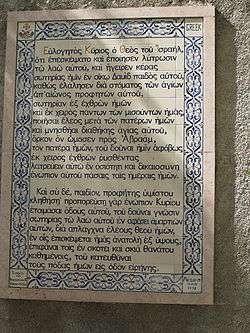 GREEK
Εὐλογητὸς Κύριος ὁ Θεὸς τοῦ Ἰσραήλ,
ὅτι ἐπεσκέψατο καὶ ἐποίησεν λύτρωσιν
τῷ λαῷ αὐτοῦ, καὶ ἤγειρεν κέρας
σωτηρίας ἡμῖν ἐν οἴκῳ Δαυὶδ παιδὸς αὐτοῦ,
καθὼς ἐλάλησεν διὰ στόματος τῶν ἁγίων
ἀπ' αἰῶνος προφητῶν αὐτοῦ,
σωτηρίαν ἐξ ἐχθρῶν ἡμῶν
καὶ ἐκ χειρὸς πάντων τῶν μισούντων ἡμᾶς,
ποιῆσαι ἔλεος μετὰ τῶν πατέρων ἡμῶν
καὶ μνησθῆναι διαθήκης ἁγίας αὐτοῦ,
ὅρκον ὃν ὤμοσεν πρὸς Ἀβραὰμ
τὸν πατέρα ἡμῶν, τοῦ δοῦναι ἡμῖν ἀφόβως
ἐκ χειρὸς ἐχθρῶν ῥυσθέντας
λατρεύειν αὐτῷ ἐν ὁσιότητι καὶ δικαιοσύνῃ
ἐνώπιον αὐτοῦ πάσαις ταῖς ἡμέραις ἡμῶν.
Καὶ σὺ δέ, παιδίον, προφήτης ὑψίστου
κληθήσῃ· προπορεύσῃ γὰρ ἐνώπιον Κυρίου
ἑτοιμάσαι ὁδοὺς αὐτοῦ, τοῦ δοῦναι γνῶσιν
σωτηρίας τῷ λαῷ αὐτοῦ ἐν ἀφέσει ἁμαρτιῶν
αὐτῶν, διὰ σπλάγχνα ἐλέους Θεοῦ ἡμῶν,
ἐν οἷς ἐπισκέψεται ἡμᾶς ἀνατολὴ ἐξ ὕψους,
ἐπιφᾶναι τοῖς ἐν σκότει καὶ σκιᾷ θανάτου
καθημένοις, τοῦ κατευθῦναι
τοὺς πόδας ἡμῶν εἰς ὁδὸν εἰρήνης.